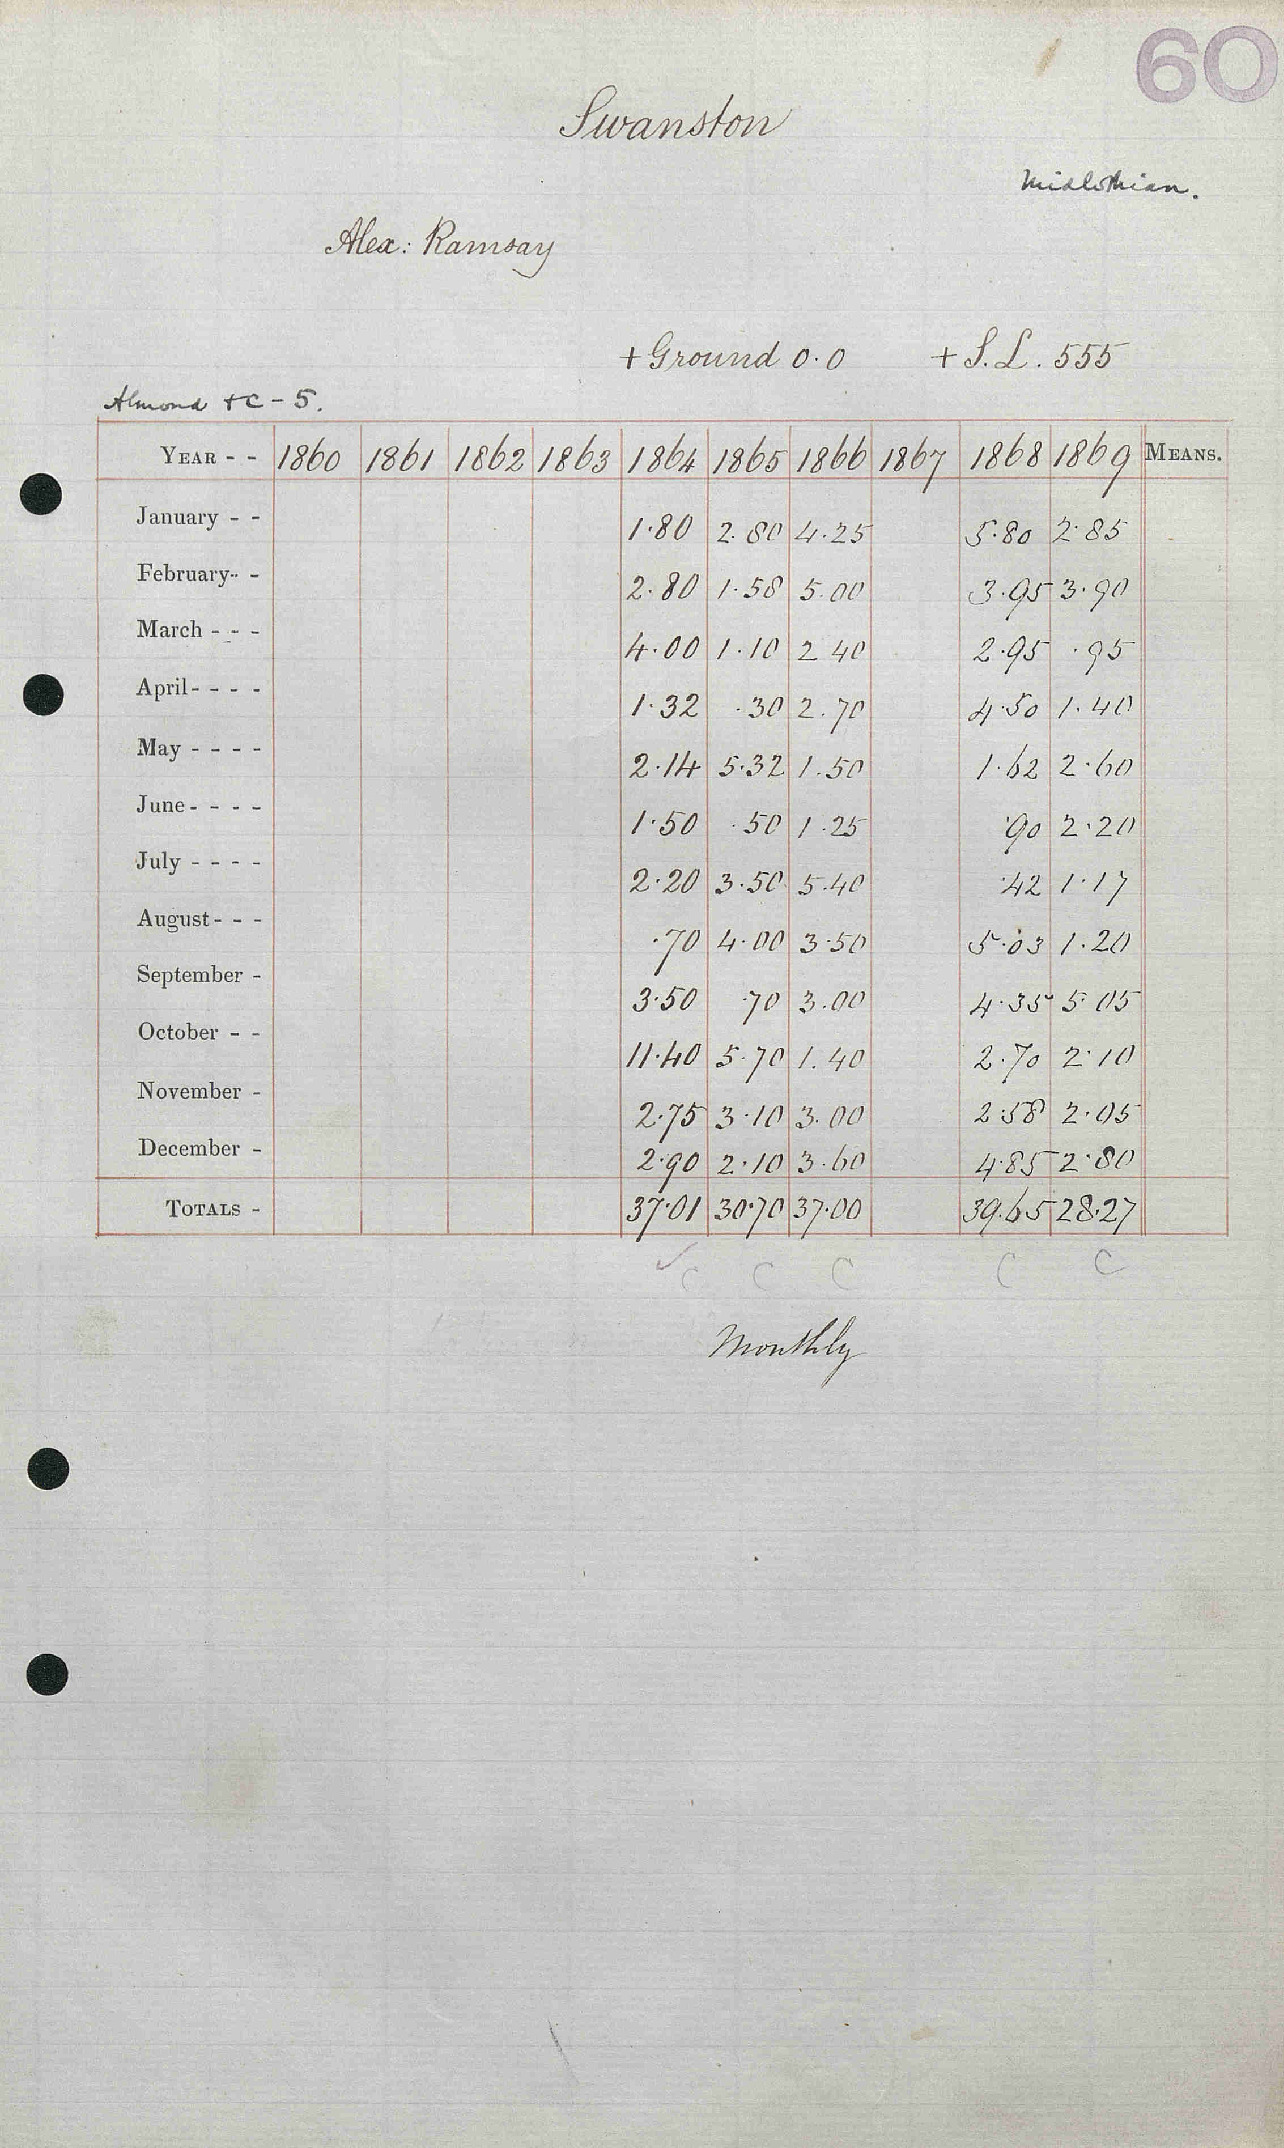 60
Swanston
Midlothian.
Alex: Ramsay
+ Ground 0.0 + S.L. 555
Almond + C - 5.
YEAR - - 1860 1861 1862 1863 1864 1865 1866 1867 1868 1869 MEANS.
January - - 1.80 2.80 4.25 5.80 2.85
February - - 2.80 1.58 5.00 3.95 3.90
March - - - 4.00 1.10 2.40 2.95 .95
April - - - - 1.32 .30 2.70 4.50 1.40
May - - - - 2.14 5.32 1.50 1.62 2.60
June - - - - 1.50 .50 1.25 .90 2.20
July - - - - 2.20 3.50 5.40 .42 1.17
August - - - .70 4.00 3.50 5.03 1.20
September - 3.50 .70 3.00 4.35 5.05
October - - 11.40 5.70 1.40 2.70 2.10
November - 2.75 3.10 3.00 2.58 2.05
December - 2.90 2.10 3.60 4.85 2.80
TOTALS - 37.01 30.70 37.00 39.65 28.27
✓ C C C C C
Monthly